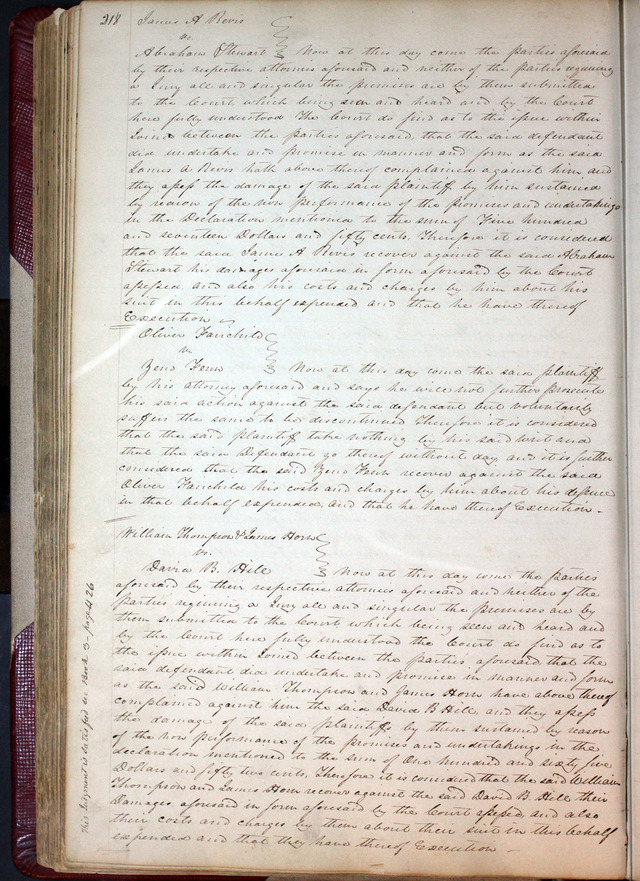 218 James A Revis
vs.
Abraham Stewart Now at this day come the parties aforesaid
by their respective attornies aforesaid and neither of the parties requiring
a Jury all and singular the premises are by them submitted
to the Court which being seen and heard and by the Court
here fully understood The Court do find as to the issue within
Joined between the parties aforesaid, that the said defendant
did undertake and promise in manner and form as the said
James A Revis hath above thereof complained against him, and
they assess the damage of the said plaintiff by him sustained
by reason of the non performance of the promises and undertakings
in the Declaration mentioned to the sum of Five hundred
and seventeen Dollars and fifty cents, Therefore it is considered
that the said James A Revis recover against the said Abraham
Stewart his damages aforesaid in form aforesaid by the Court
assessed and also his costs and charges by him about his
suit in this behalf expended and that he have thereof
Execution
Oliver Fairchild
vs
Zeno Fenn Now at this day come the said plaintiff
by his attorney aforesaid and says he will not further Prosecute
his said action against the said defendant but voluntarily
suffers the same to be discontinued Therefore it is considered
that the said plaintiff take nothing by his said writ and
that the said Defendant go thereof without day, and it is further
considered that the said Zeno Fenn recover against the said
Oliver Fairchild his costs and charges by him about his defence
in that behalf expended, and that he have thereof Execution -
William Thompson & James Horn
vs.
David B. Hill Now at this day come the parties
aforesaid by their respective attornies aforesaid and neither of the
Parties requiring a Jury all and singular the Premises are by
them submitted to the Court which being seen and heard and
by the Court here fully understood the Court do find as to
the issue within Joined between the Parties, aforesaid that the
said defendant did undertake and promise in manner and form
as the said William Thompson and James Horn have above thereof
complained against him the said David B Hill, and they assess
the damage of the said plaintiffs by them sustained by reason
of the non performance of the promises and undertakings in the
declaration mentioned to the sum of One hundred and sixty five
Dollars and fifty two cents, Therefore it is considered that the said William
Thompson and James Horn recover against the said David B. Hill their
Damages aforesaid in form aforesaid by the Court assessed and also
their costs and charges by them about their suit in this behalf
expended and that they have thereof Execution -
This Judgment is satisfied see Book 3 - page 426